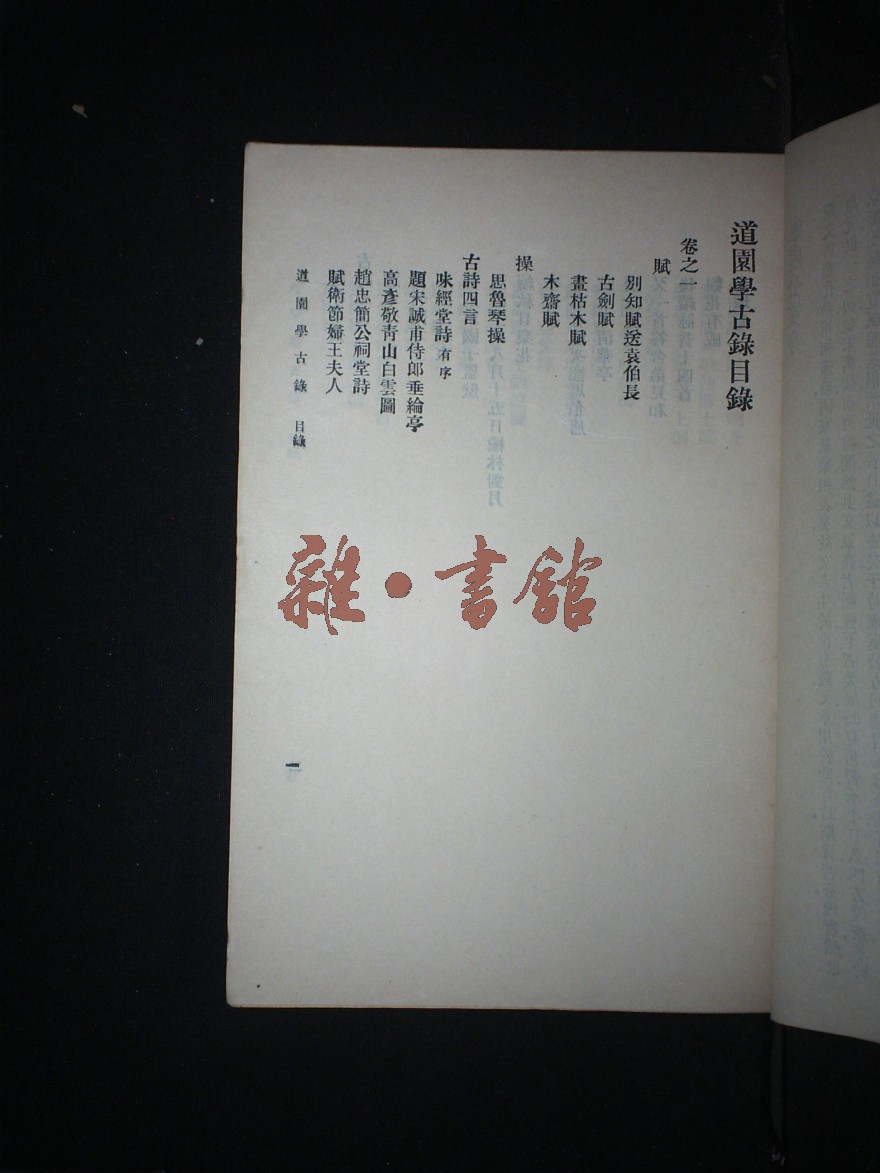 道園學古錄目錄
卷之一
賦
別知賦送袁伯長
古劍賦
畫枯木賦
木齋賦
操
思魯琴操
古詩四言
味經堂詩有序
題宋誠甫侍郎垂綸亭
高彥敬青山白雲圖
趙忠簡公祠堂詩
賦衛節婦王夫人
道園學古錄 目錄
一
雜·書館